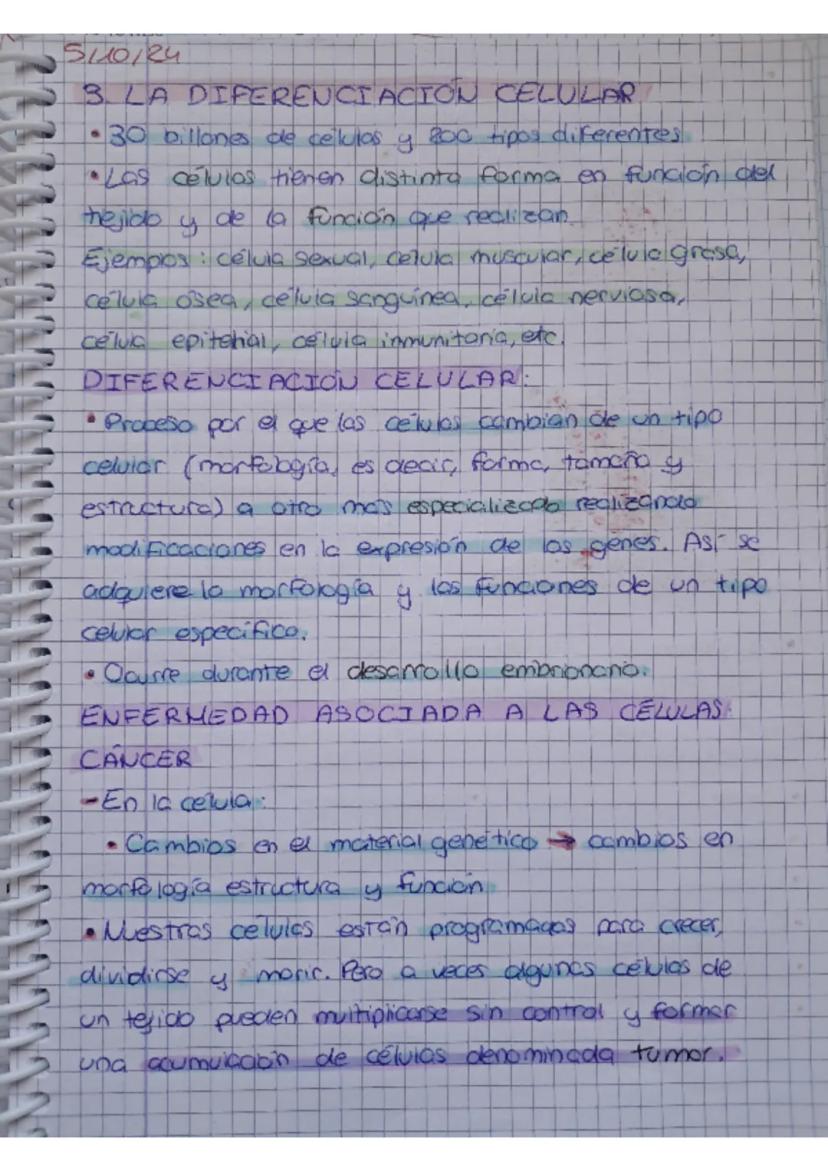 5/10/24
3. LA DIFERENCIACIÓN CELULAR
• 30 billones de células y 200 tipos diferentes
• Las células tienen distinta forma en función del
tejido y de la función que realizan.
Ejempos: célula sexual, celula muscular, célula grasa,
célula osea, célula sanguínea, célula nerviosa,
célula epitelial, célula inmunitaria, etc.
DIFERENCIACIÓN CELULAR:
• Proceso por el que las células cambian de un tipo
celular (morfología, es decir, forma, tamaño y
estructura) a otro más especializado realizando
modificaciones en la expresión de los genes. Así se
adquiere la morfología y las funciones de un tipo
celular específico.
• Ocurre durante el desarrollo embrionario.
ENFERMEDAD ASOCIADA A LAS CÉLULAS:
CÁNCER
- En la célula:
• Cambios en el material genético → cambios en
morfología estructura y función
• Nuestras células están programadas para crecer,
dividirse y morir. Pero a veces algunas células de
un tejido pueden multiplicarse sin control y formar
una acumulación de células denominada tumor.